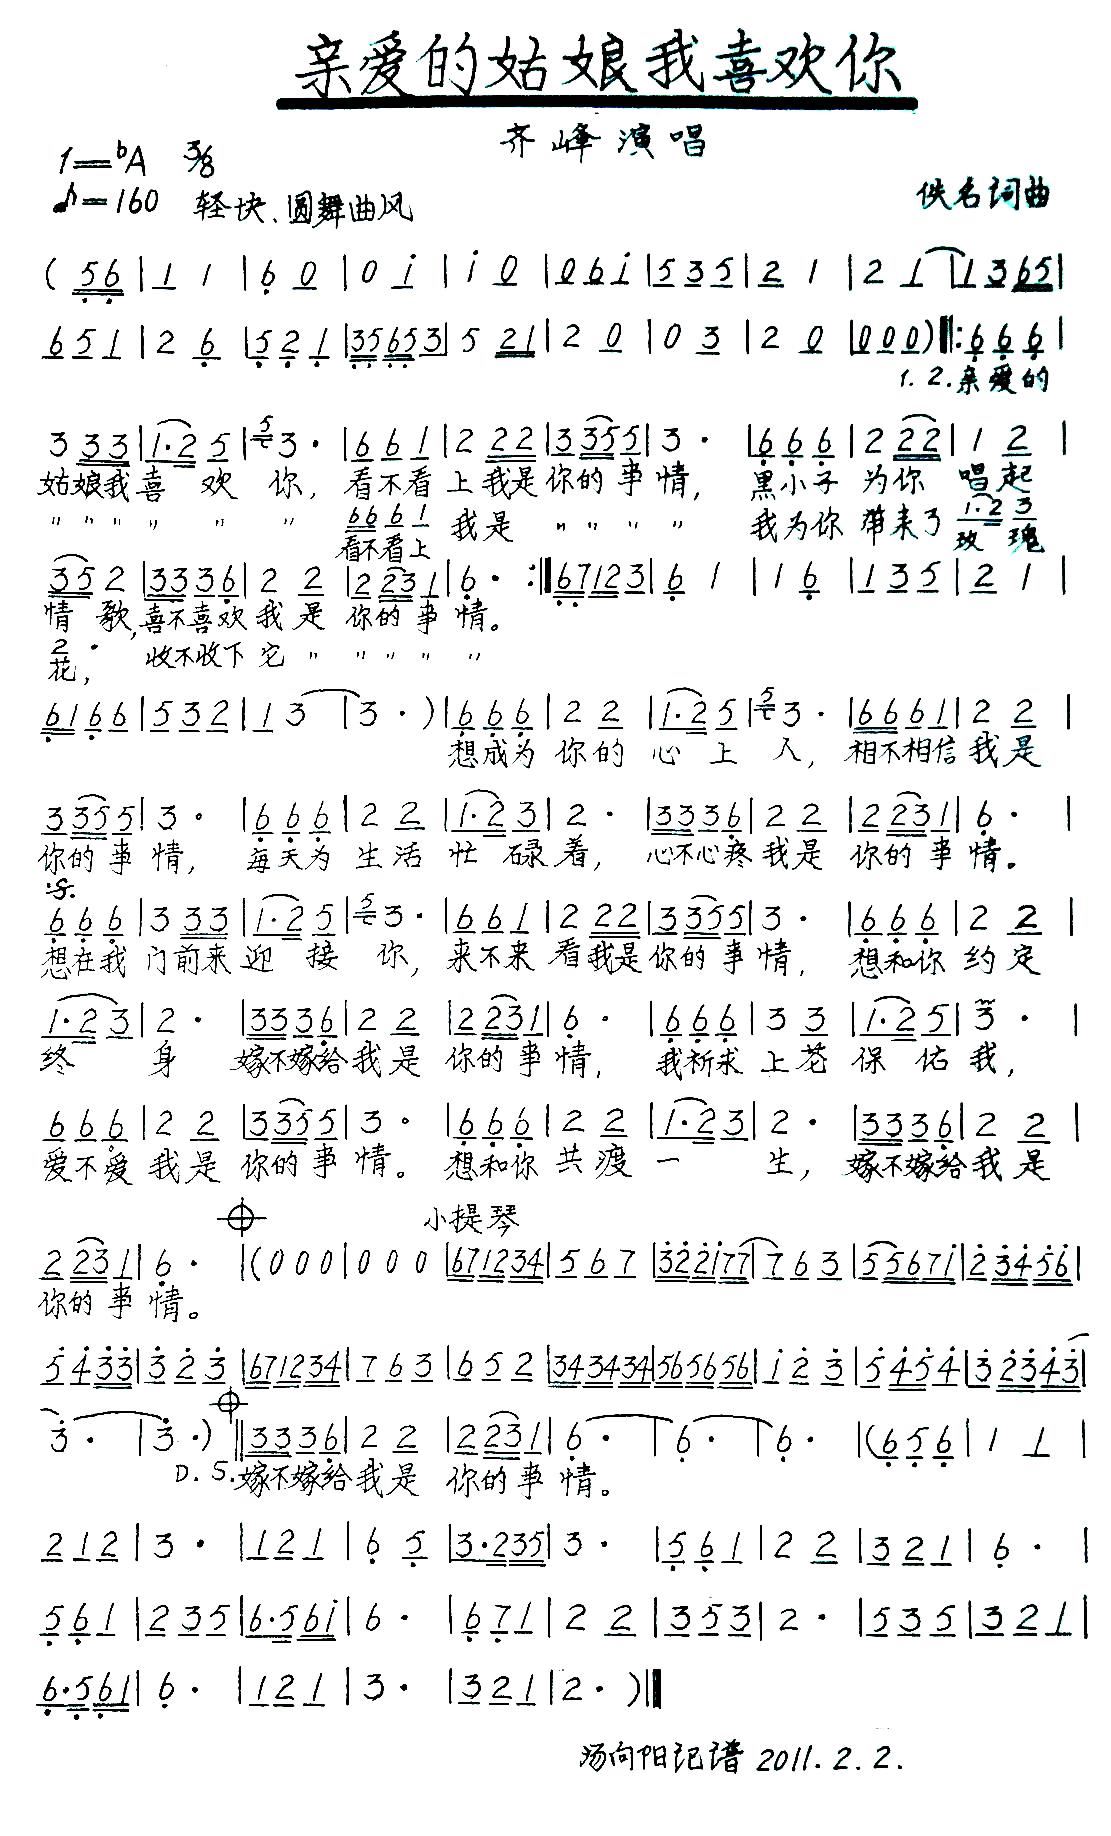 亲爱的姑娘我喜欢你
齐峰演唱
1=bA 3/8
♪=160 轻快、圆舞曲风
佚名词曲
(56|11|60|0i|i0|06i|535|21|21|1365|
651|26|521|35653|521|20|03|20|000)‖:666|
1.2.亲爱的
333 3|1·25|53·|661|222|3355|3·|666|222|12|
姑娘我喜欢你,看不看上我是你的事情,黑小子为你唱起
〃〃〃〃〃〃 6661 我是〃〃〃〃 我为你带来了 1·23
看不看上 玫瑰
352|3336|22|2231|6·:‖67123|61|16|135|21|
情歌,喜不喜欢我是你的事情。
2·
花, 收不收下它〃〃〃〃〃
6166|532|13|3·)|666|22|1·25|53·|6661|22|
想成为你的心上人,相不相信我是
3355|3·|666|22|1·23|2·|3336|22|2231|6·|
你的事情,每天为生活忙碌着,心不心疼我是你的事情。
666|333|1·25|53·|661|222|3355|3·|666|22|
想在我门前来迎接你,来不来看我是你的事情,想和你约定
1·23|2·|3336|22|2231|6·|666|33|1·25|3·|
终身嫁不嫁给我是你的事情,我祈求上苍保佑我,
666|22|3355|3·|666|22|1·23|2·|3336|22|
爱不爱我是你的事情。想和你共渡一生,嫁不嫁给我是
小提琴
2231|6·|(000|000|671234|567|322177|763|55671|23456|
你的事情。
5433|323|671234|763|652|343434|565656|123|5454|32343|
3·|3·)‖3336|22|2231|6·|6·|6·|(656|11|
D.S.嫁不嫁给我是你的事情。
212|3·|121|65|3·235|3·|561|22|321|6·|
561|235|6·561|6·|671|22|353|2·|535|321|
6·561|6·|121|3·|321|2·)‖
汤向阳记谱 2011.2.2.